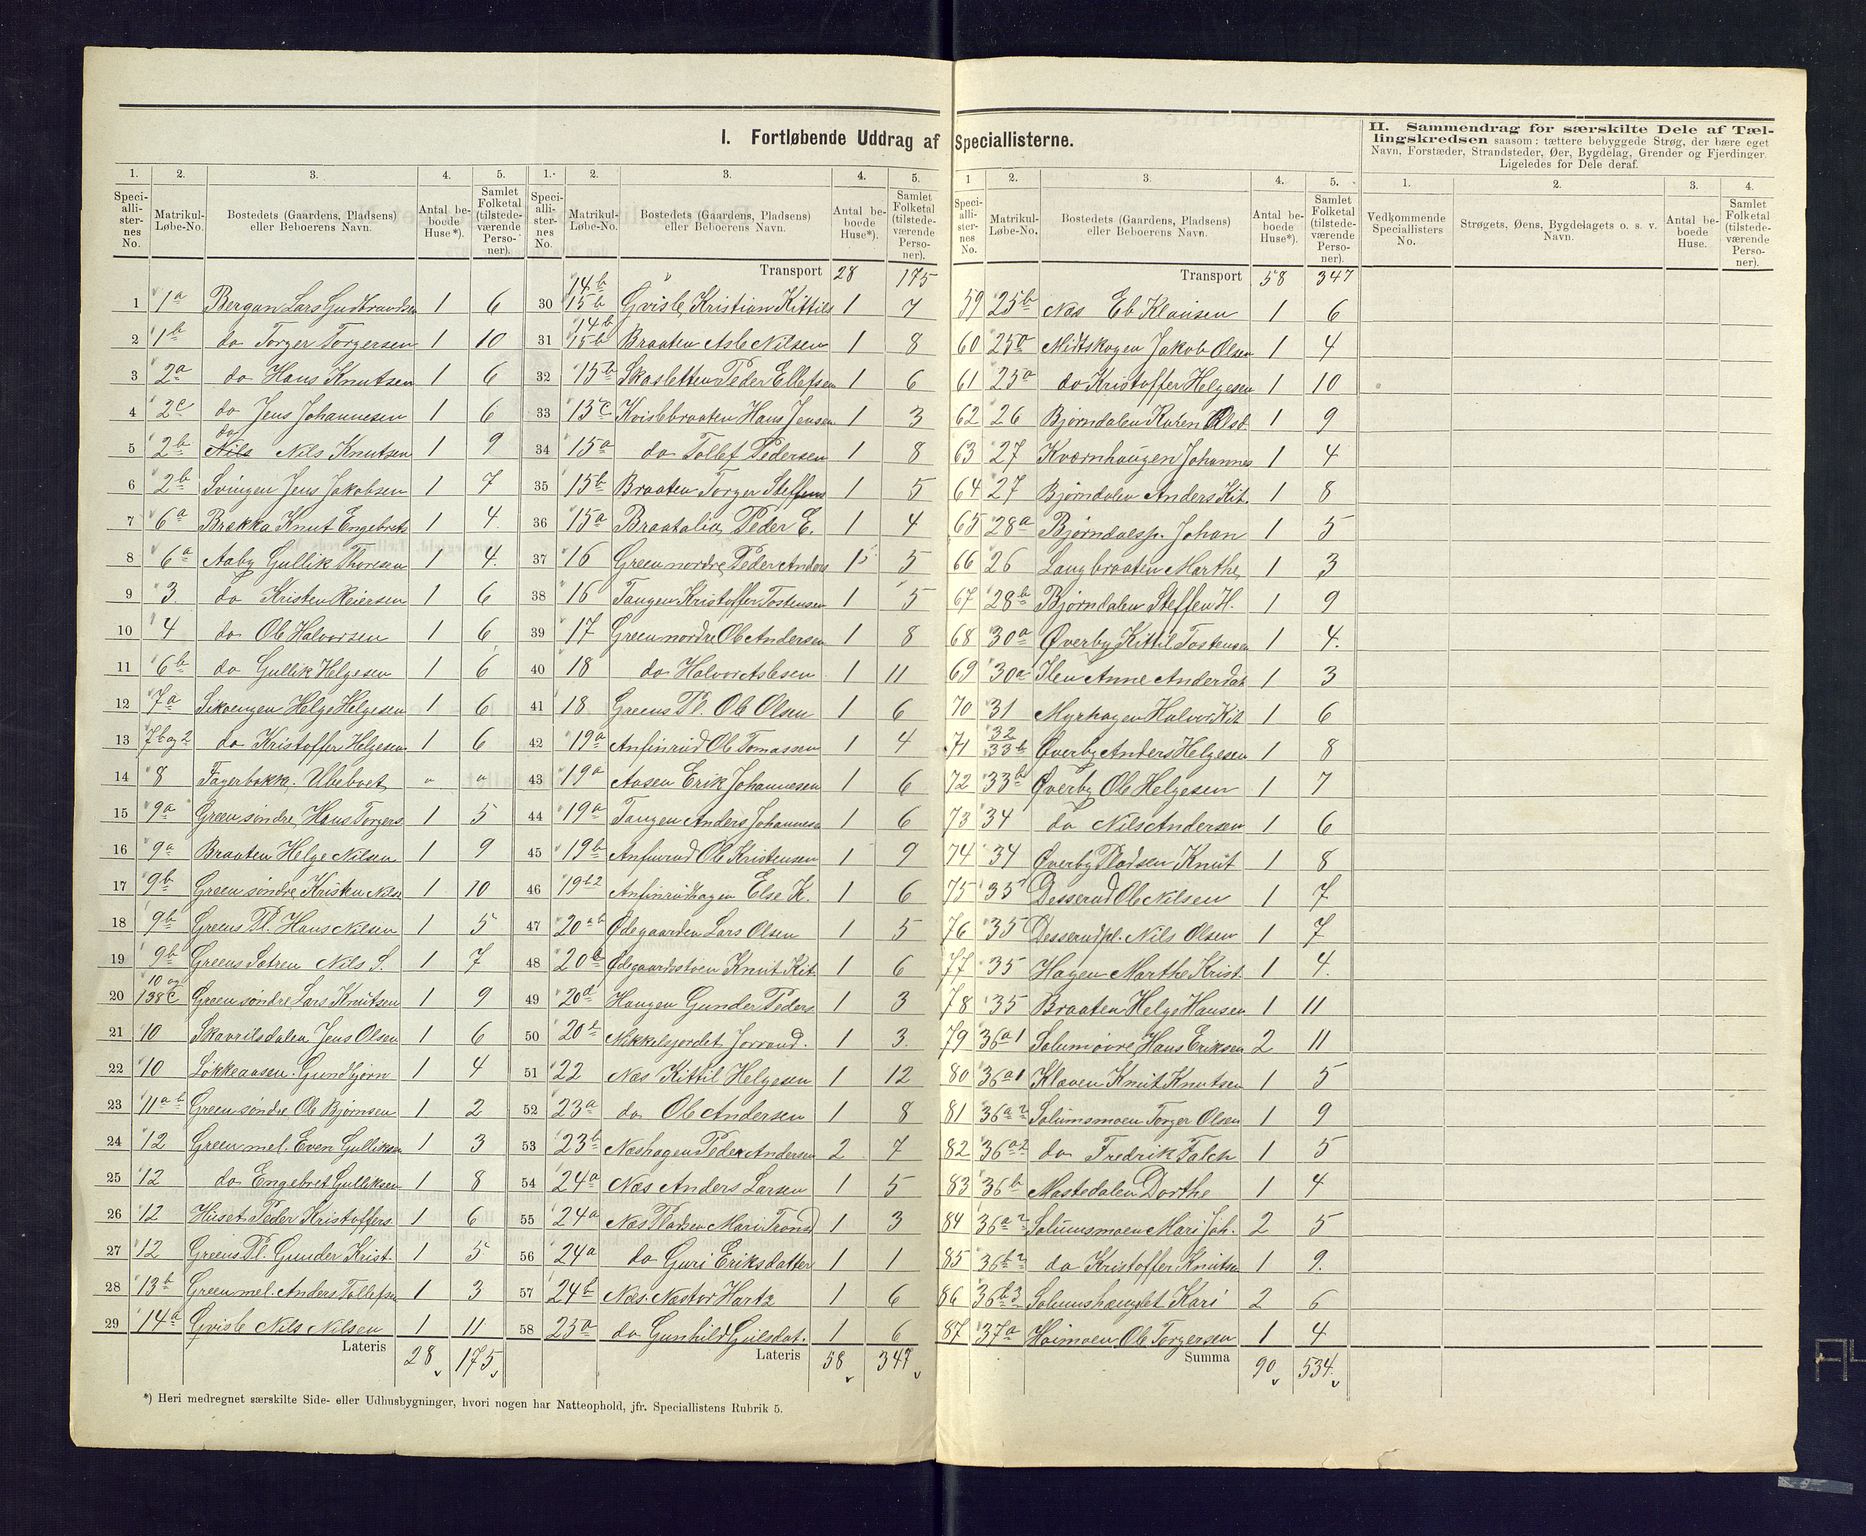 I. Fortløbende Uddrag af Speciallisterne.
II. Sammendrag for særskilte Dele af Tæl-
lingskredsen saasom: tættere bebyggede Strøg, der bære eget
Navn, Forstæder, Strandsteder, Øer, Bygdelag, Grender og Fjerdinger.
Ligeledes for Dele deraf.
1. 2. 3. 4. 5.
Speciallisternes No. Matrikul-Løbe-No. Bostedets (Gaardens, Pladsens) eller Beboerens Navn. Antal beboede Huse*). Samlet Folketal (tilstedeværende Personer).
1 1a Bergan Lars Gudbrandsen 1 6
2 1b do Torger Torgersen 1 10
3 2a do Hans Knutsen 1 6
4 2c do Jens Johannesen 1 6
5 2b do Nils Knutsen 1 9
6 2b Svingen Jens Jakobsen 1 7
7 6a Brækka Knut Engebrets 1 4
8 6a Aaby Gullik Thoresen 1 4
9 3 do Kristen Reiersen 1 6
10 4 do Ole Halvorsen 1 6
11 6b do Gullik Helgesen 1 6
12 7a Skougen Helge Helgesen 1 6
13 7b og 2 do Kristoffer Helgesen 1 6
14 8 Fagerbakk. Ubeboet " "
15 9a Green søndre Hans Torgers 1 5
16 9a Braaten Helge Nilsen 1 9
17 9b Green søndre Kristen Nilse 1 10
18 9b Greens Pl. Hans Nilsen 1 5
19 9b Greens Sætren Nils S. 1 7
20 10 og 138c Green søndre Lars Knutsen 1 9
21 10 Skavrilsdalen Jens Olsen 1 6
22 10 Løkkeaasen Gundbjørn 1 4
23 11a b Green søndre Ole Bjørnsen 1 2
24 12 Green mel. Even Gulliksen 1 3
25 12 do Engebret Gulliksen 1 8
26 12 Huset Peder Kristoffers 1 6
27 12 Greens Pl. Gunder Krist. 1 5
28 13b Green mel. Anders Tollefsen 1 3
29 14a Gvisle Nils Nilsen 1 11
Lateris 28 175
1. 2. 3. 4. 5.
Speciallisternes No. Matrikul-Løbe-No. Bostedets (Gaardens, Pladsens) eller Beboerens Navn. Antal beboede Huse*). Samlet Folketal (tilstedeværende Personer).
Transport 28 175
30 14b 15b Gvisle Kristian Kittils 1 7
31 14b 15b Braaten Asle Nilsen 1 8
32 15b Skasletten Peder Ellefsen 1 6
33 13c Kvislebraaten Hans Jensen 1 3
34 15a do Tollef Pedersen 1 8
35 15b Braaten Torger Steffens 1 5
36 15a Braatalia Peder E. 1 4
37 16 Green nordre Peder Anders 1 5
38 16 Tangen Kristoffer Tostensen 1 5
39 17 Green nordre Ole Andersen 1 8
40 18 do Halvor Aslesen 1 11
41 18 Greens Pl. Ole Olsen 1 6
42 19a Anfinrud Ole Tomassen 1 4
43 19a Aasen Erik Johannesen 1 6
44 19a Tangen Anders Johannese 1 6
45 19b Anfinrud Ole Kristensen 1 9
46 19b2 Anfinrudhagen Else K. 1 6
47 20ab Ødegaarden Lars Olsen 1 5
48 20c Ødegaardsstoen Knut Kit 1 6
49 20d Haugen Gunder Peders 1 3
50 20e Nikkelsjordet Jorrand. 1 3
51 22 Næs Kittil Helgesen 1 12
52 23a do Ole Andersen 1 8
53 23b Næshagen Peder Andersen 2 7
54 24a Næs Anders Larsen 1 5
55 24a Næs Pladsen Mari Trond 1 3
56 24a do Guri Eriksdatter 1 1
57 24b Næs Næstor Hartz 1 6
58 25a do Gunhild Gulsdat. 1 6
Lateris 58 347
1 2. 3. 4. 5.
Speciallisternes No. Matrikul-Løbe-No. Bostedets (Gaardens, Pladsens) eller Beboerens Navn. Antal beboede Huse*). Samlet Folketal (tilstedeværende Personer).
Transport 58 347
59 25b Næs Eb Klausen 1 6
60 25a Midtskogen Jakob Olsen 1 4
61 25a do Kristoffer Helgesen 1 10
62 26 Bjørndalen Karen Olsd. 1 9
63 27 Kværnhaugen Johannes 1 4
64 27 Bjørndalen Anders Kit. 1 8
65 28a Bjørndalsp. Johan 1 5
66 26 Langbraaten Marthe 1 3
67 28b Bjørndalen Steffen H. 1 9
68 30a Øverby Kittil Tostensen 1 4
69 30a Ilen Anne Andersdat 1 3
70 31 Myrhagen Halvor Kit 1 6
71 32 33b Øverby Anders Helgesen 1 8
72 33b Øverby Ole Helgesen 1 7
73 34 do Nils Andersen 1 6
74 34 Øverby Pladsen Knut 1 8
75 35 Desserud Ole Nilsen 1 7
76 35 Desserudpl. Nils Olsen 1 7
77 35 Hagen Marthe Krist 1 4
78 35 Braaten Helge Hansen 1 11
79 36a1 Solumoire Hans Eriksen 2 11
80 36a1 Klæven Knut Knutsen 1 5
81 36a2 Solumsmoen Torger Olsen 1 9
82 36a2 do Fredrik Falch 1 5
83 36b Mastedalen Dorthe 1 4
84 36a2 Solumsmoen Mari Joh. 2 5
85 36b2 do Kristoffer Knutsen 1 9
86 36b3 Solumshænglet Kari 2 6
87 37a Hoimoen Ole Torgersen 1 4
Summa 90 534
1. 2. 3. 4.
Vedkommende Speciallisters No. Strøgets, Øens, Bygdelagets o. s. v. Navn. Antal beboede Huse. Samlet Folketal (tilstedeværende Personer).
*) Heri medregnet særskilte Side- eller Udhusbygninger, hvori nogen har Natteophold, jfr. Speciallistens Rubrik 5.